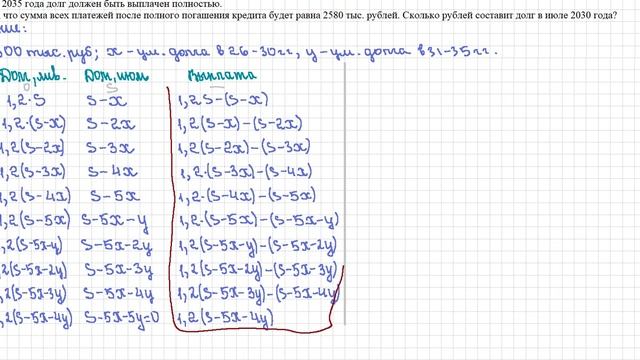 2035 года долг должен быть выплачен полностью.
что сумма всех платежей после полного погашения кредита будет равна 2580 тыс. рублей. Сколько рублей составит долг в июле 2030 года?
ие:
00 тыс.руб; x - ум. долга в 26-30гг, y - ум. долга в 31-35 гг.
Долг, янв. Долг, июль Выплата
1,2·S S-x 1,2S-(S-x)
1,2·(S-x) S-2x 1,2(S-x)-(S-2x)
1,2(S-2x) S-3x 1,2(S-2x)-(S-3x)
1,2(S-3x) S-4x 1,2·(S-3x)-(S-4x)
1,2(S-4x) S-5x 1,2·(S-4x)-(S-5x)
1,2(S-5x) S-5x-y 1,2·(S-5x)-(S-5x-y)
,2(S-5x-y) S-5x-2y 1,2(S-5x-y)-(S-5x-2y)
,2(S-5x-2y) S-5x-3y 1,2(S-5x-2y)-(S-5x-3y)
,2(S-5x-3y) S-5x-4y 1,2(S-5x-3y)-(S-5x-4y)
,2(S-5x-4y) S-5x-5y=0 1,2(S-5x-4y)